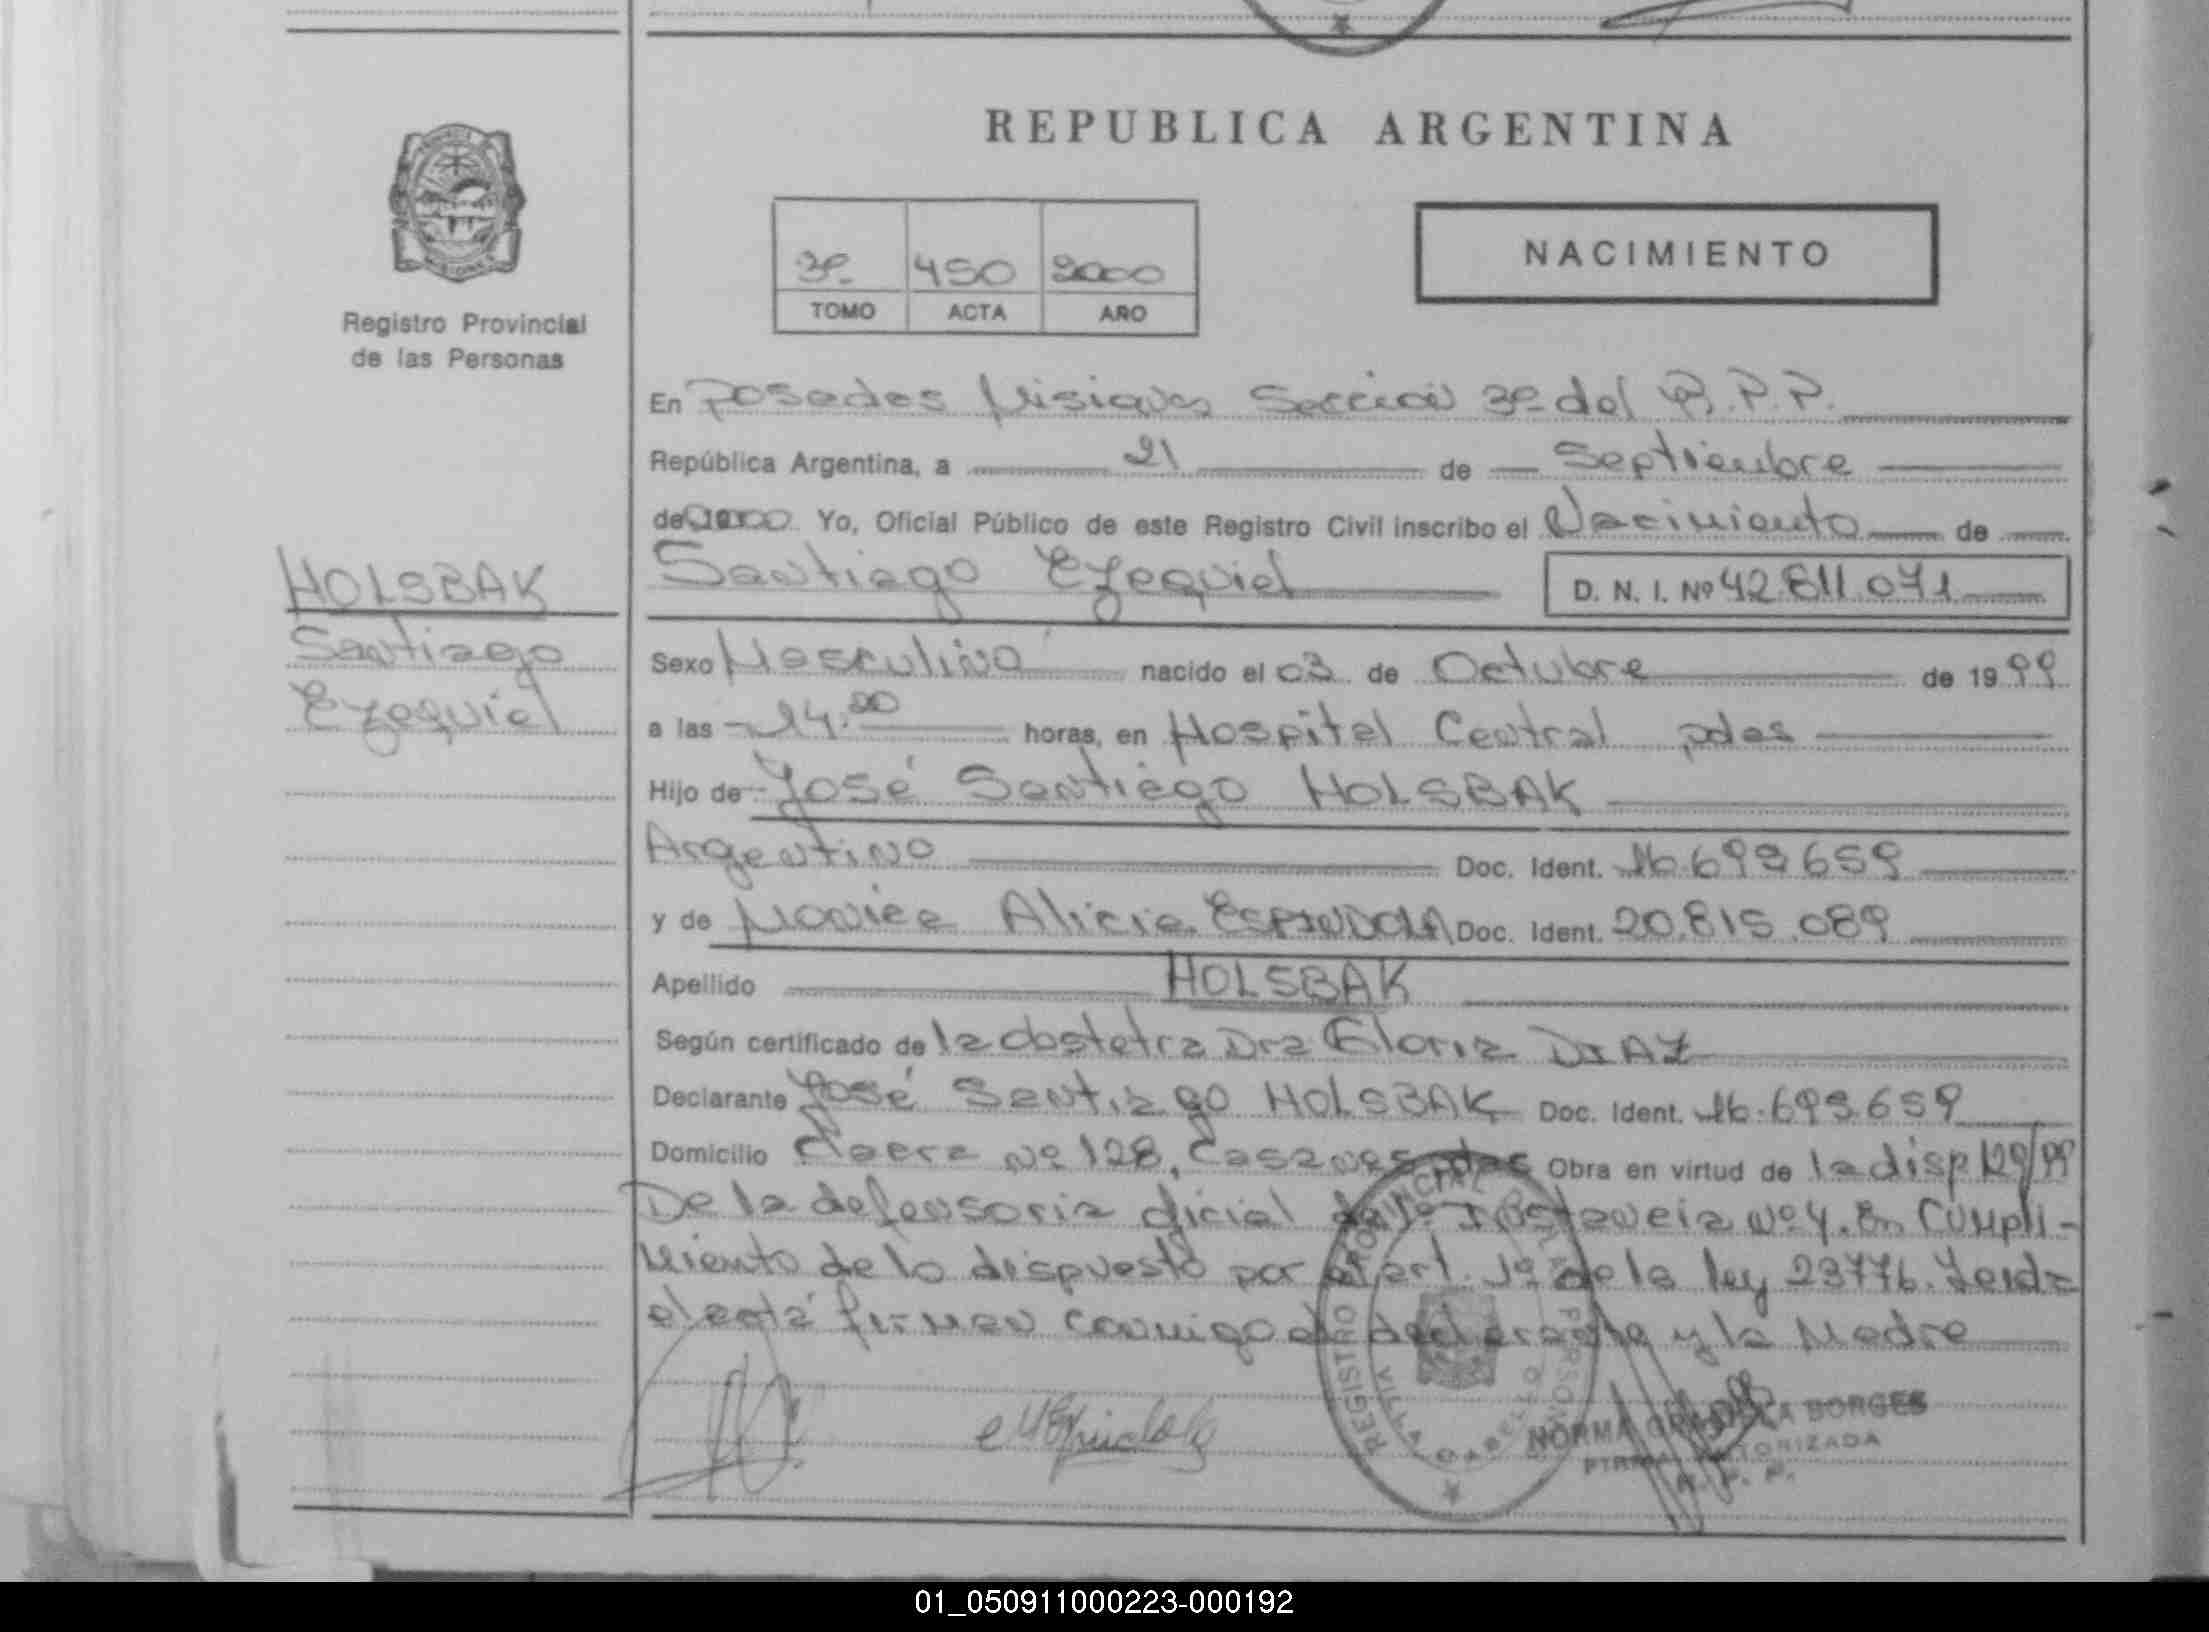 REPUBLICA ARGENTINA
3º 450 2000
TOMO ACTA AÑO
NACIMIENTO
Registro Provincial
de las Personas
En Posadas Misiones Sección 3º del R.P.P.
República Argentina, a 21 de Septiembre
de 2000 Yo, Oficial Público de este Registro Civil inscribo el Nacimiento de
Santiago Ezequiel D. N. I. Nº 42.811.071
HOLSBAK
Santiago
Ezequiel
Sexo Masculino nacido el 03 de Octubre de 1999
a las 14.20 horas, en Hospital Central pdas
Hijo de José Santiago HOLSBAK
Argentino Doc. Ident. 16.693.659
y de Monica Alicia ESPINDOLA Doc. Ident. 20.815.089
Apellido HOLSBAK
Según certificado de la obstetra Dra Gloria DIAZ
Declarante José Santiago HOLSBAK Doc. Ident. 16.693.659
Domicilio nº 128, pdas Obra en virtud de la disp 129/99
De la defensoria oficial de 1º Instancia nº 4. En Cumpli-
miento de lo dispuesto por el art. 1º de la ley 23776. Leida
el acta firman conmigo el declarante y la Madre
REGISTRO PROVINCIAL DE LAS PERSONAS
NORMA GRACIELA BORGES
FIRMA AUTORIZADA
R. P. P.
01_050911000223-000192